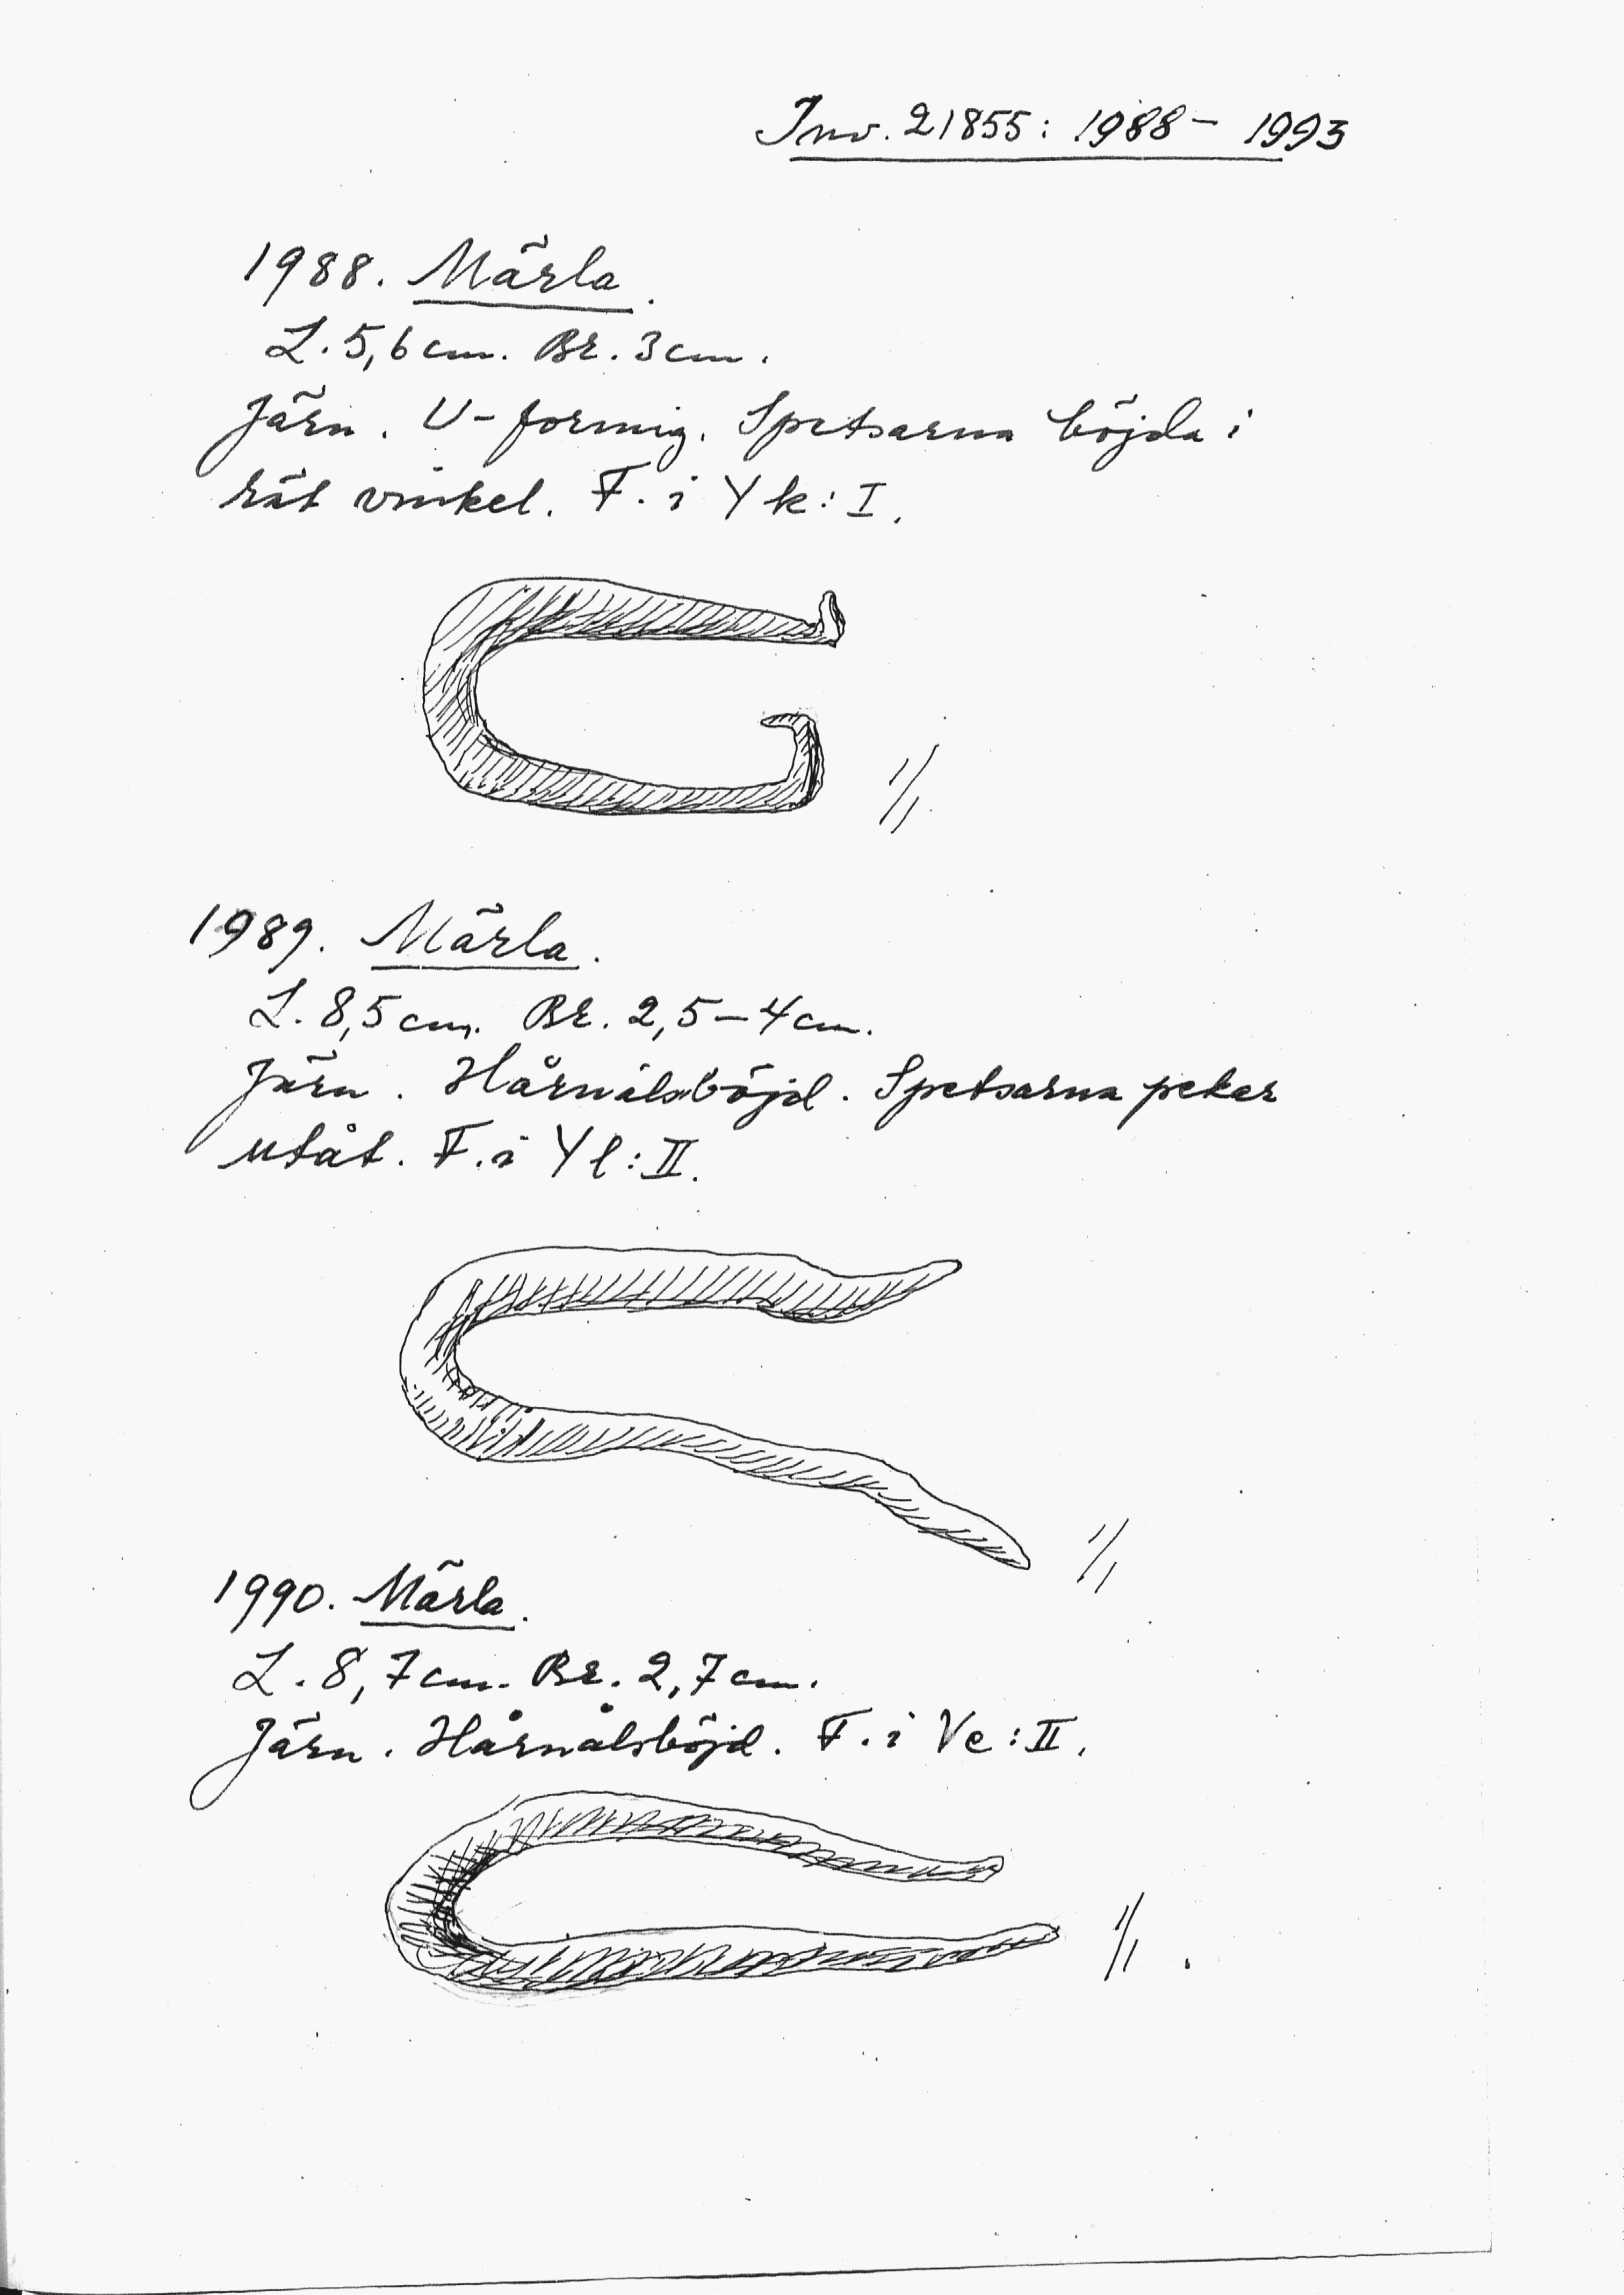 Inv. 21855: 1988 – 1993
1988. Märla.
L. 5,6 cm. Br. 3 cm.
Järn. U-formig. Spetsarna böjda i
rät vinkel. F. i Yk: I.
1/1
1989. Märla.
L. 8,5 cm. Br. 2,5–4 cm.
Järn. Hårnålsböjd. Spetsarna pekar
utåt. F. i Yl: II.
1/1
1990. Märla.
L. 8,7 cm. Br. 2,7 cm.
Järn. Hårnålsböjd. F. i Ve: II.
1/1.